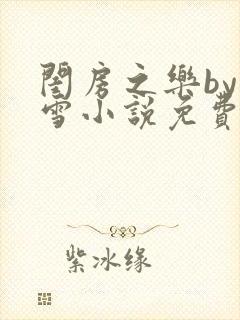 閨房之樂by
雪小說免費
紫冰缘